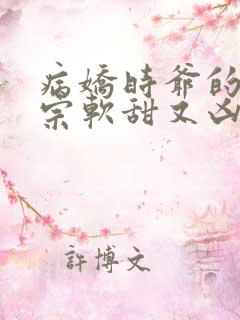 病嬌時爺的
宗軟甜又凶
許博文